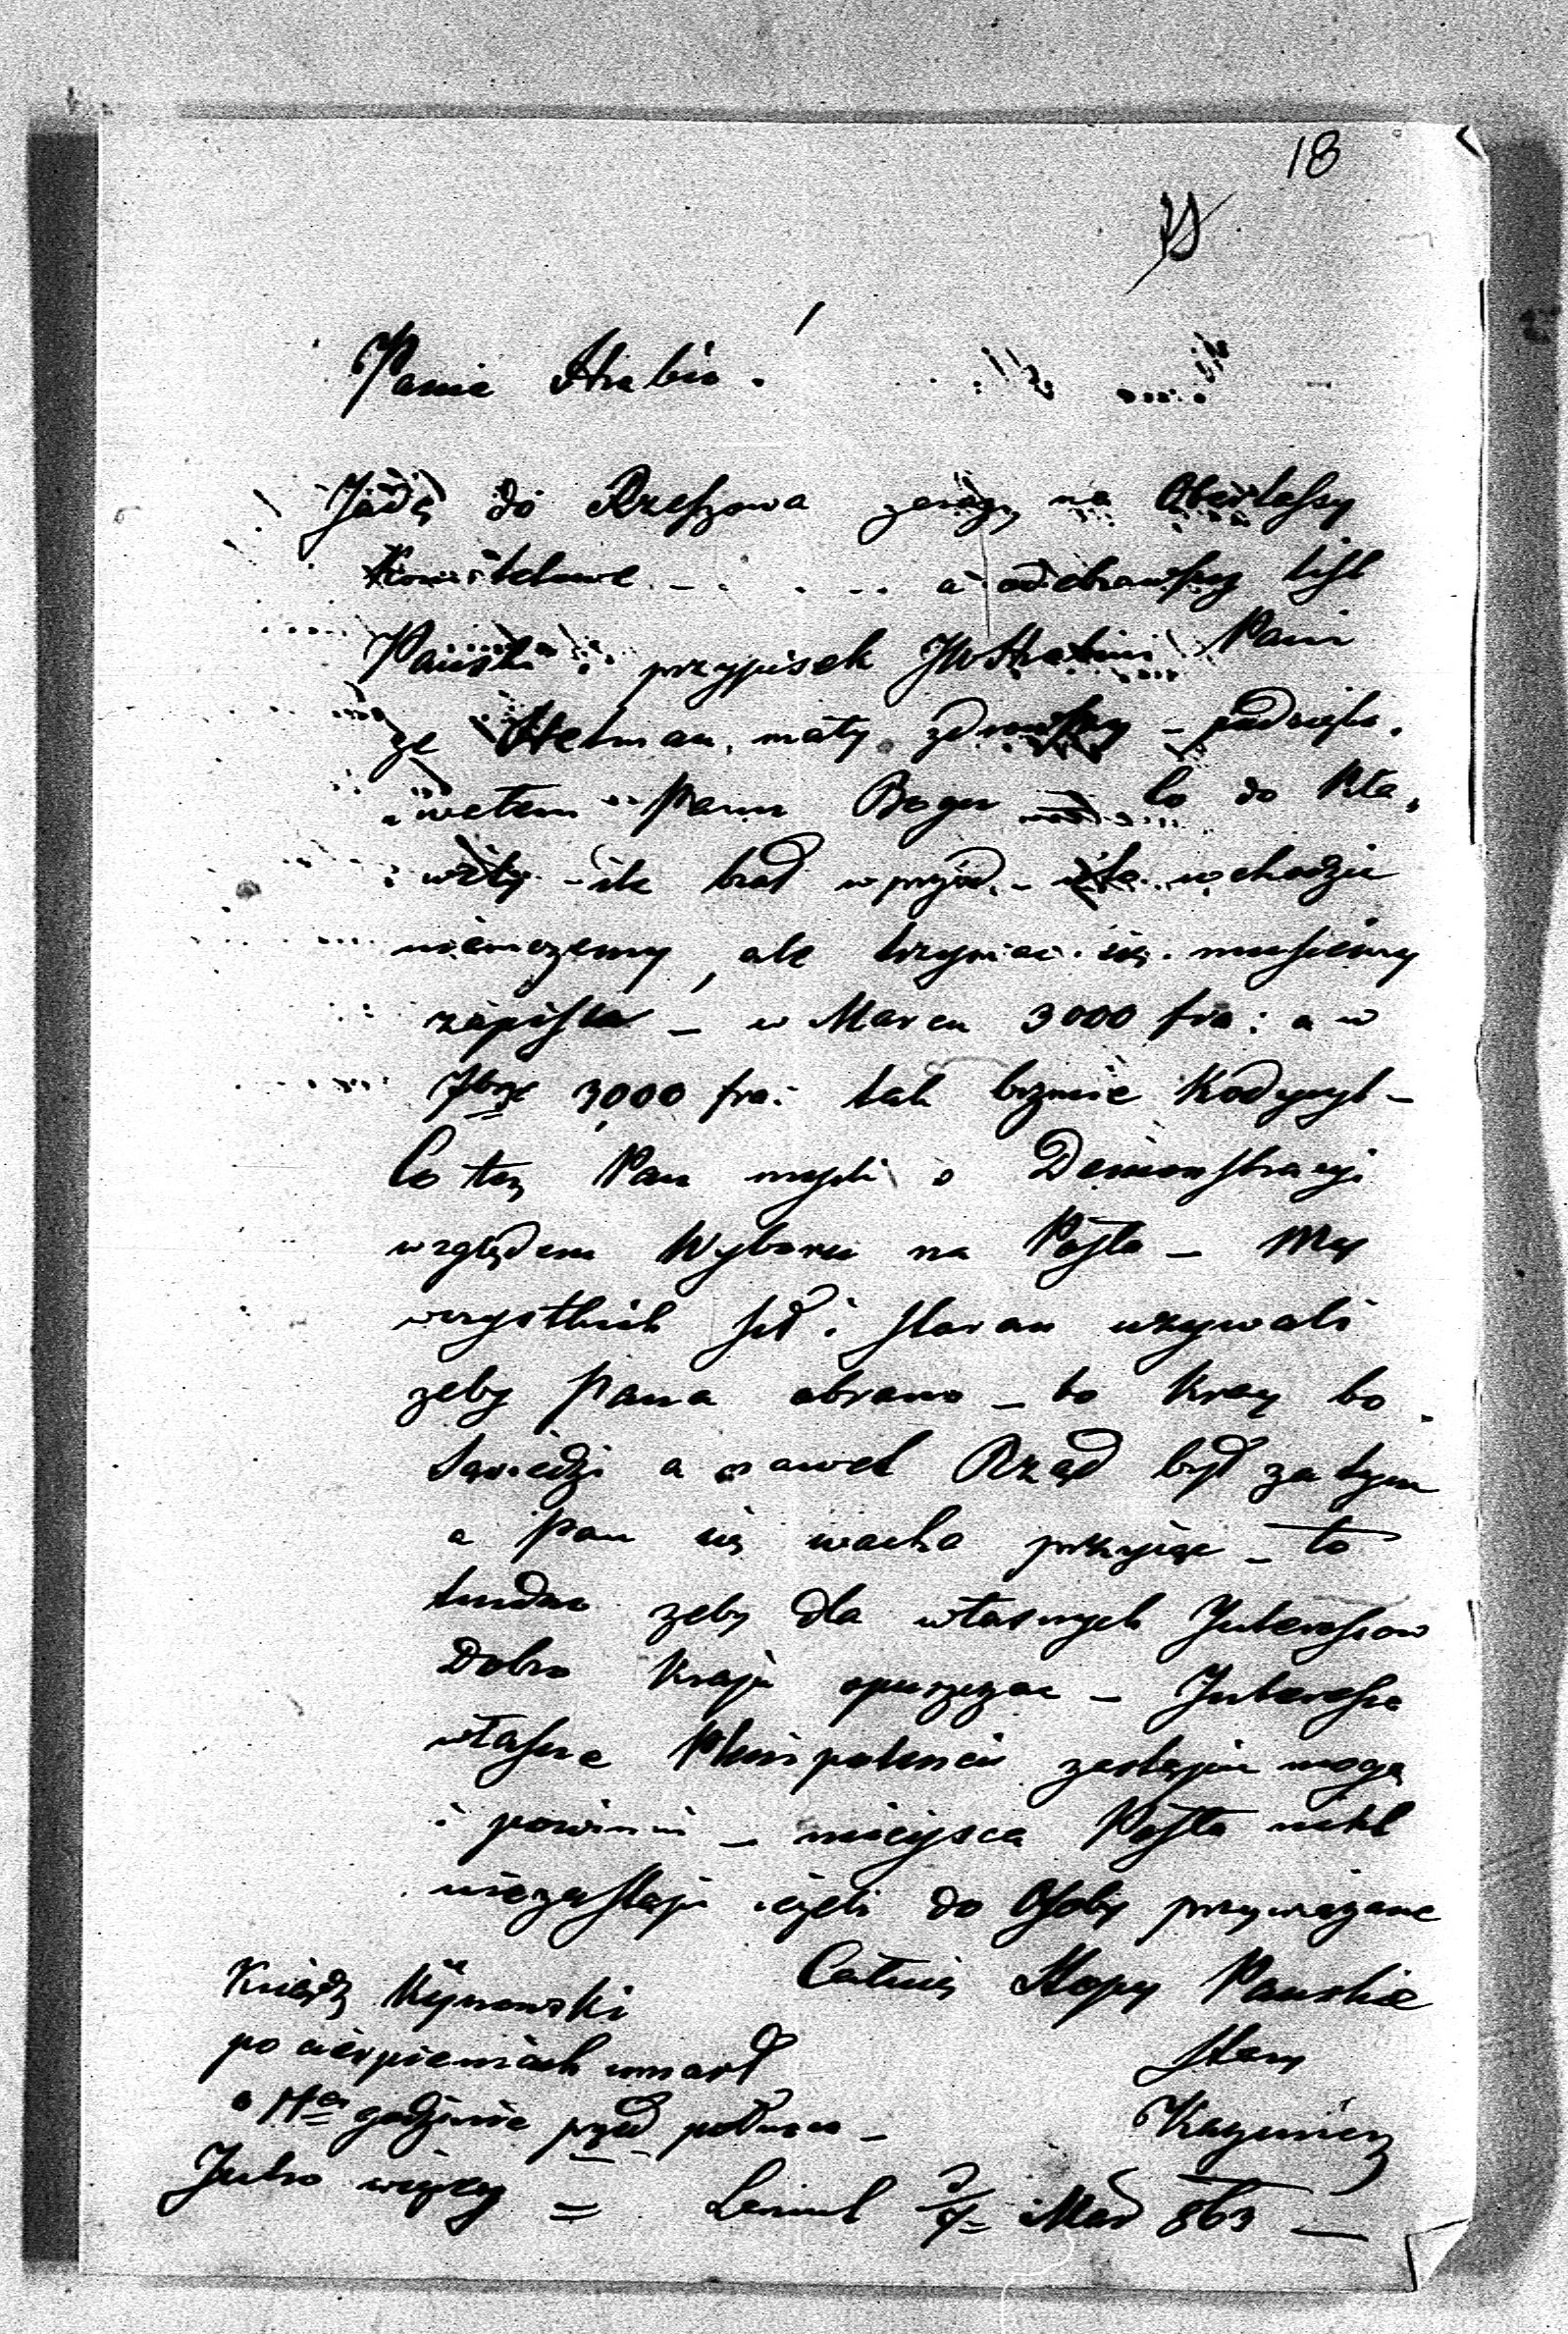 18
Panie Hrabio.
Jadę do Rzeszowa na
a odebrawszy list
Pański i przypisek JW Hrabini Pani
ze Hetman mały zdrowszy –
Panu Bogu – Co do Kla,
wprzód – wchodzić
niemozemy, ale trzymać się musiemy
zapisu – w Marcu 3000 fra: a w
7brze 3,000 fra: tak brzmie Kodycyl –
Co tez Pan mysli o Demonstracyi
względem Wyboru na Posła – My
wszystkich sił i staran uzywali
zeby Pana obrano – bo Kray bo
Sąsiedzi a nawet Rząd był za tym
a Pan się wacha przyjąć – to
trudno zeby dla własnych Interessow
Dobro Kraju opuszczac – Interessa
własne Plenipotencii zastąpic mogą
i powinni – mieysca Posła nikt
niezastąpi iezeli do Osoby przywiązane
Całuię Stopy Panskie
Stary
Kazymierz
Ksiądz
po cierpieniach umarł
o godzinie przed połnocą –
Jutro więcey = Mar 863 –